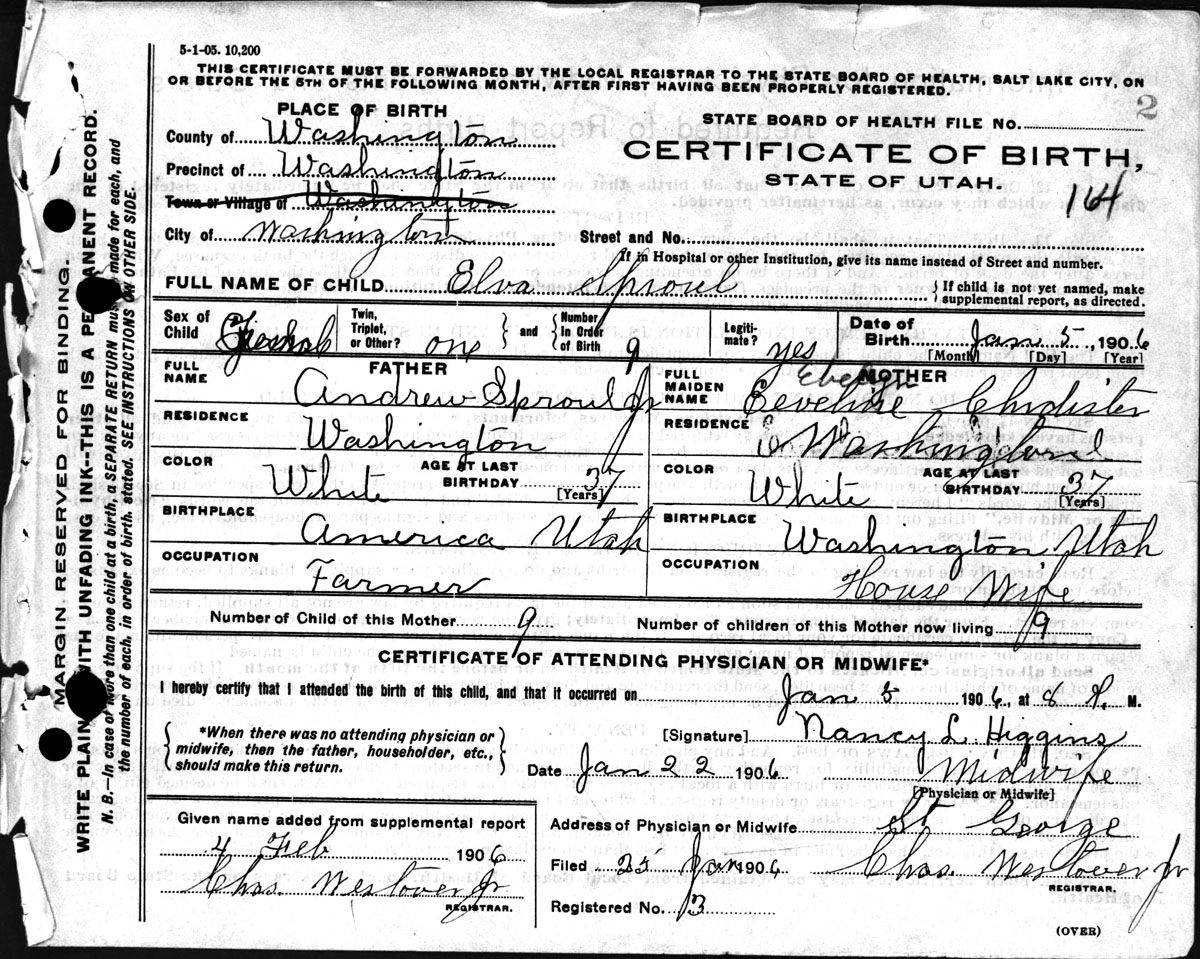 5-1-05. 10,200
THIS CERTIFICATE MUST BE FORWARDED BY THE LOCAL REGISTRAR TO THE STATE BOARD OF HEALTH, SALT LAKE CITY, ON
OR BEFORE THE 5TH OF THE FOLLOWING MONTH, AFTER FIRST HAVING BEEN PROPERLY REGISTERED.
2
PLACE OF BIRTH
STATE BOARD OF HEALTH FILE NO.
County of Washington
CERTIFICATE OF BIRTH,
Precinct of Washington
STATE OF UTAH.
164
Town or Village of Washington
City of Washington
Street and No.
If in Hospital or other Institution, give its name instead of Street and number.
FULL NAME OF CHILD Elva Sproul
} If child is not yet named, make supplemental report, as directed.
Sex of Child
Twin, Triplet, or Other? one } and { Number in Order of Birth 9
Legitimate? yes
Date of Birth Jan 5, 1906
[Month] [Day] [Year]
FATHER
FULL NAME Andrew Sproul Jr
RESIDENCE Washington
COLOR White
AGE AT LAST BIRTHDAY 37 [Years]
BIRTHPLACE America Utah
OCCUPATION Farmer
MOTHER
FULL MAIDEN NAME Chidister
RESIDENCE Washington
COLOR White
AGE AT LAST BIRTHDAY 37 [Years]
BIRTHPLACE Washington Utah
OCCUPATION House Wife
Number of Child of this Mother 9 Number of children of this Mother now living 9
CERTIFICATE OF ATTENDING PHYSICIAN OR MIDWIFE*
I hereby certify that I attended the birth of this child, and that it occurred on Jan 5 1906, at 8 M.
{ *When there was no attending physician or midwife, then the father, householder, etc., should make this return. }
[Signature] Nancy L. Higgins
Date Jan 22 1906 Midwife
[Physician or Midwife]
Given name added from supplemental report
4 Feb 1906
Chas. Westover Jr
REGISTRAR.
Address of Physician or Midwife St George
Filed 25 Jan 1906 Chas. Westover Jr
REGISTRAR.
Registered No. 3
(OVER)
MARGIN RESERVED FOR BINDING.
WRITE PLAINLY WITH UNFADING INK--THIS IS A PERMANENT RECORD.
N. B.—In case of more than one child at a birth, a SEPARATE RETURN must be made for each, and
the number of each, in order of birth, stated. SEE INSTRUCTIONS ON OTHER SIDE.